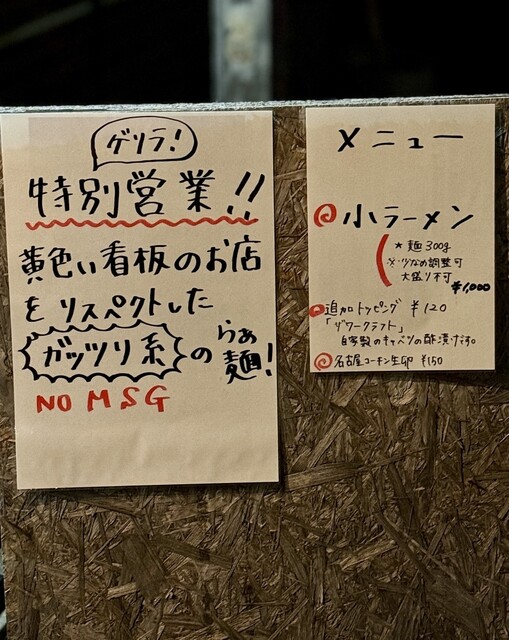 ゲリラ!
特別営業!!
黄色い看板のお店
をリスペクトした
ガッツリ系のらぁ麺!
NO MSG
メニュー
小ラーメン
★麺300g
※少なめ調整可
大盛り不可
¥1,000
追加トッピング ¥120
「ザワークラフト」
自家製のキャベツの酢漬けです。
名古屋コーチン生卵 ¥150